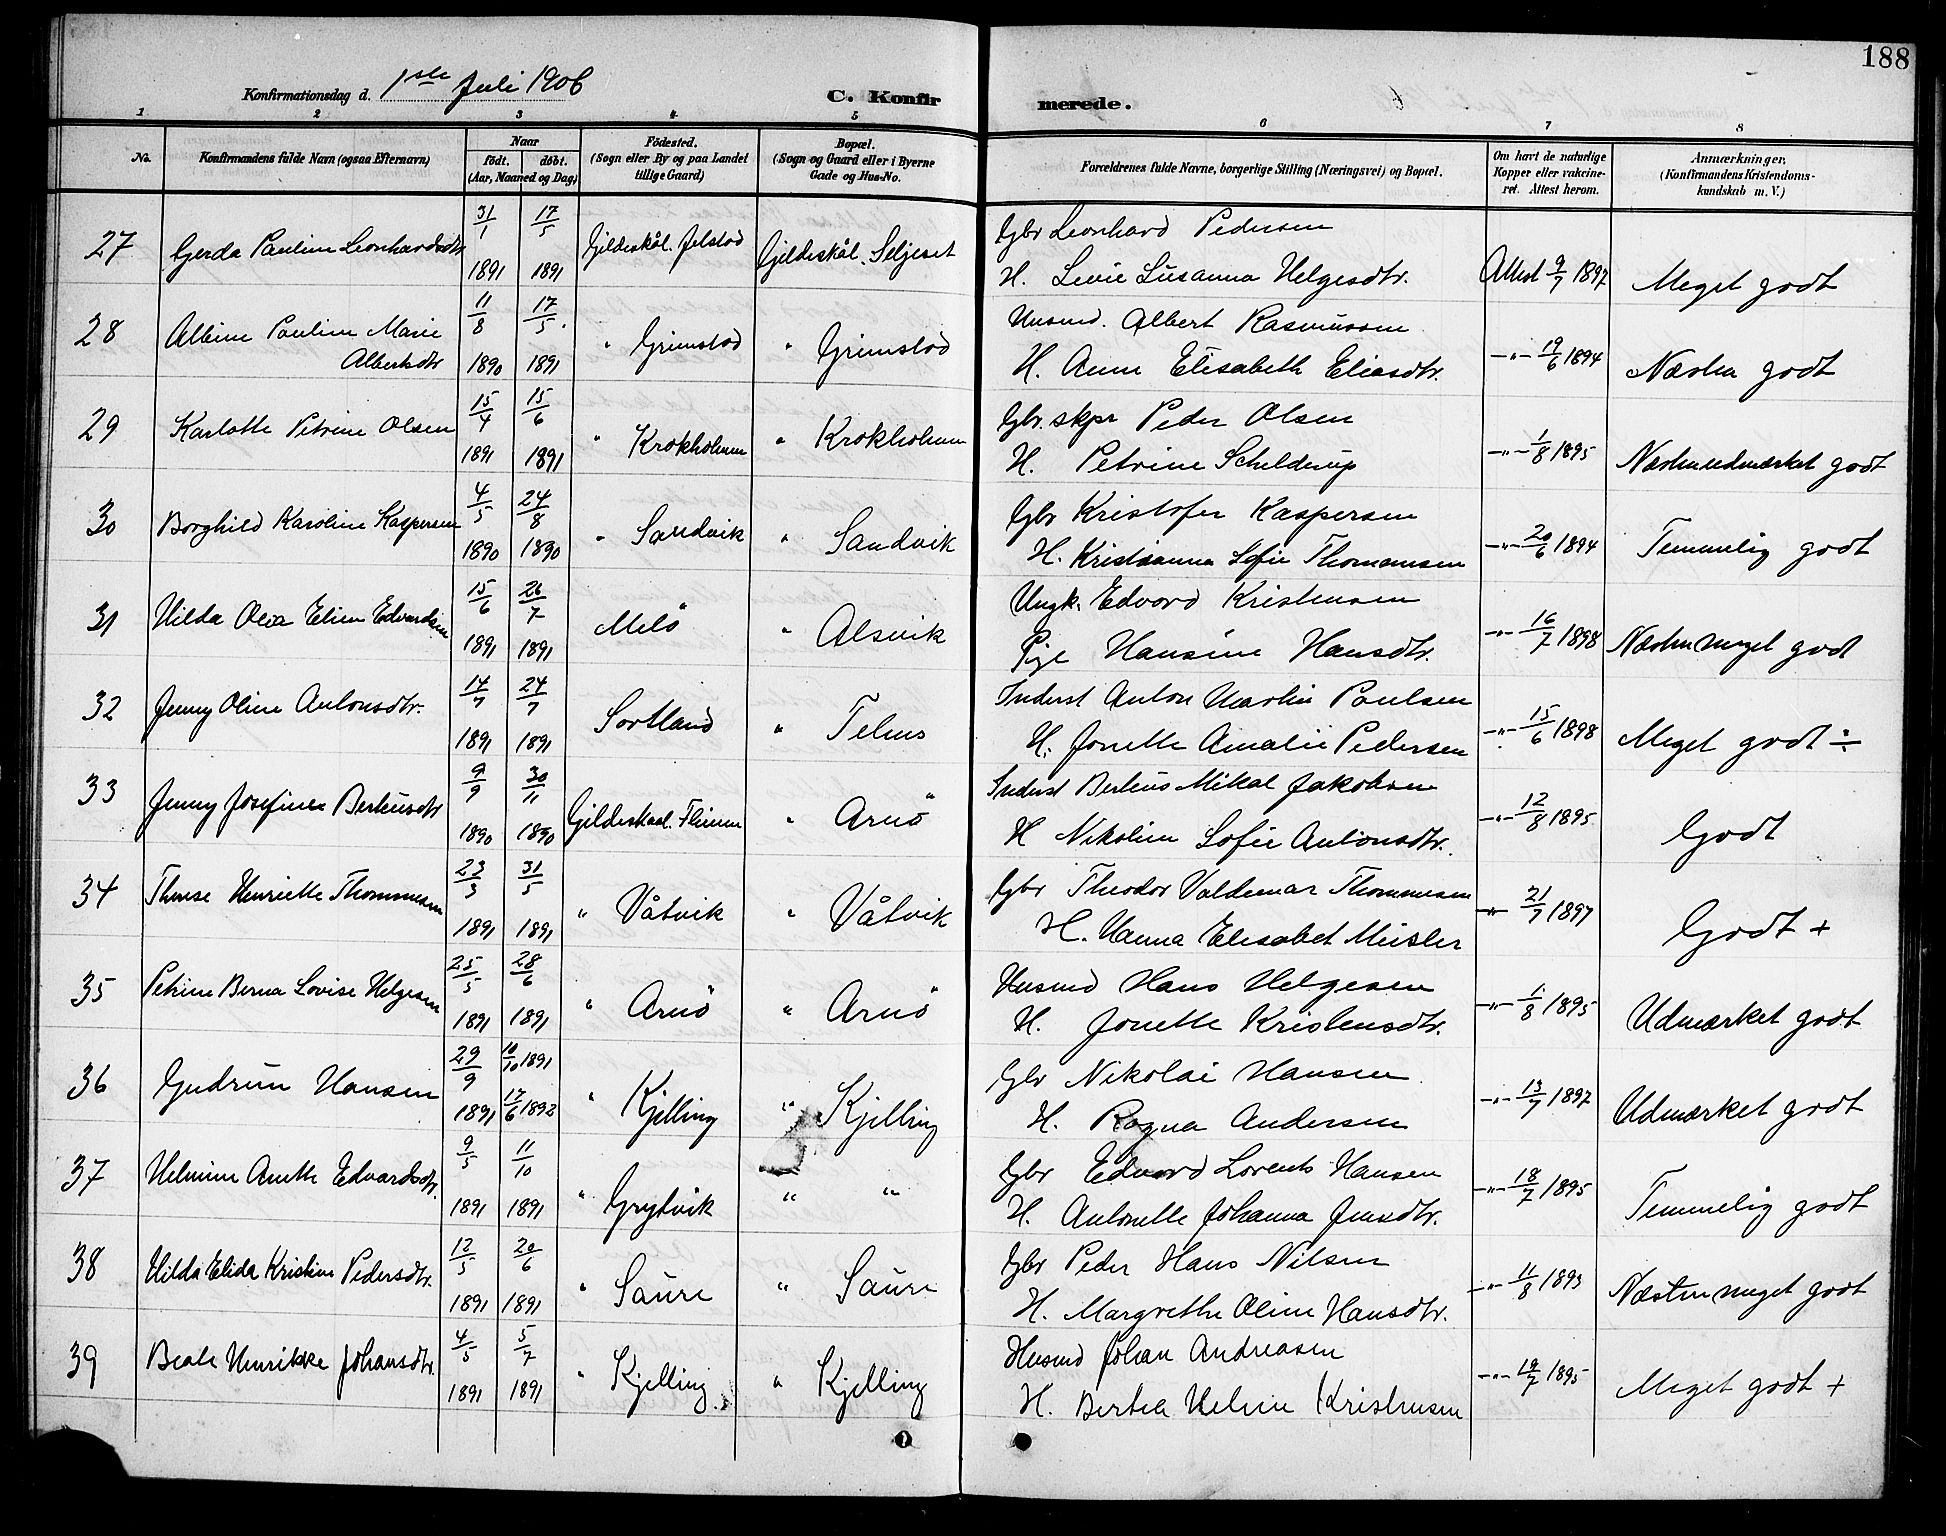 188
Konfirmationsdag d. 1ste Juli 1906
C. Konfirmerede.
1 2 3 4 5 6 7 8
No.
Konfirmandens fulde Navn (ogsaa Efternavn)
Naar
født. døbt.
(Aar, Maaned og Dag)
Fødested.
(Sogn eller By og paa Landet
tillige Gaard)
Bopæl.
(Sogn og Gaard eller i Byerne
Gade og Hus-No.
Forældrenes fulde Navne, borgerlige Stilling (Næringsvei) og Bopæl.
Om havt de naturlige
Kopper eller vakcine-
ret. Attest herom.
Anmærkninger.
(Konfirmandens Kristendoms-
kundskab m. V.)
27 Gerda Pauline Leonhardsdtr 31/1 1891 17/5 1891 Gildeskål. Jelstad Gildeskål. Seljeset
Gbr Leonhard Pedersen
H. Levie Susanna Helgesdtr. Attest 9/7 1897 Meget godt
28 Albine Pauline Marie
Albertsdtr 11/8 1890 17/5 1891 " Grimstad " Grimstad
Husmd. Albert Rasmussen
H. Anne Elisabeth Eliasdtr. -"- 19/6 1894 Næsten godt
29 Karlotte Petrine Olsen 15/4 1891 15/6 1891 " Krokholmen " Krokholmen
Gbr. skpr Peder Olsen
H. Petrine Schelderup -"- 1/8 1895 Næsten udmærket godt
30 Borghild Karoline Kaspersen 4/5 1890 24/8 1890 " Sandvik " Sandvik
Gbr Kristofer Kaspersen
H. Kristianna Sofie Thomassen -"- 20/6 1894 Temmelig godt
31 Hilda Olea Eline Edvardsen 15/6 1891 26/7 1891 Melö " Alsvik
Ungk. Edvard Kristensen
Pige Hansine Hansdtr. -"- 16/7 1898 Næsten meget godt
32 Jenny Oline Antonsdtr. 14/7 1891 24/7 1891 Sortland " Telnes
Inderst Anton Martin Paulsen
H. Jonette Amalie Pedersen -"- 15/6 1898 Meget godt ÷
33 Jenny Josefine Berteusdtr 9/9 1890 30/11 1890 Gildeskaal. Fleinen " Arnö
Inderst Berteus Mikal Jakobsen
H Nikoline Sofie Antonsdtr. -"- 12/8 1895 Godt
34 Therese Henriette Thommesen 23/3 1891 31/5 1891 " Våtvik " Våtvik
Gbr Theodor Valdemar Thommesen
H. Hanna Elisabet Meisler -"- 21/7 1897 Godt +
35 Petrine Berna Lovise Helgesen 25/5 1891 28/6 1891 " Arnö " Arnö
Husmd Hans Helgesen
H. Jonette Kristensdtr. -"- 1/8 1895 Udmærket godt
36 Gudrun Hansen 29/9 1891 10/10 1891 17/6 1892 " Kjelling " Kjelling
Gbr Nikolai Hansen
H. Ragna Andersen -"- 13/7 1897 Udmærket godt
37 Helmine Anette Edvardsdtr. 9/5 1891 11/10 1891 " Grytvik " "
Gbr Edvard Lorents Hansen
H. Antonette Johanna Jensdtr. -"- 18/7 1895 Temmelig godt
38 Hilda Elida Kristine Pedersdtr. 12/5 1891 20/6 1891 " Saure " Saure
Gbr Peder Hans Nilsen
H. Margrethe Oline Hansdtr. -"- 11/8 1893 Næsten meget godt
39 Beate Henrikke Johansdtr. 4/5 1891 5/7 1891 " Kjelling " Kjelling
Husmd Johan Andreasen
H. Bertea Heline Kristensen -"- 19/7 1895 Meget godt +